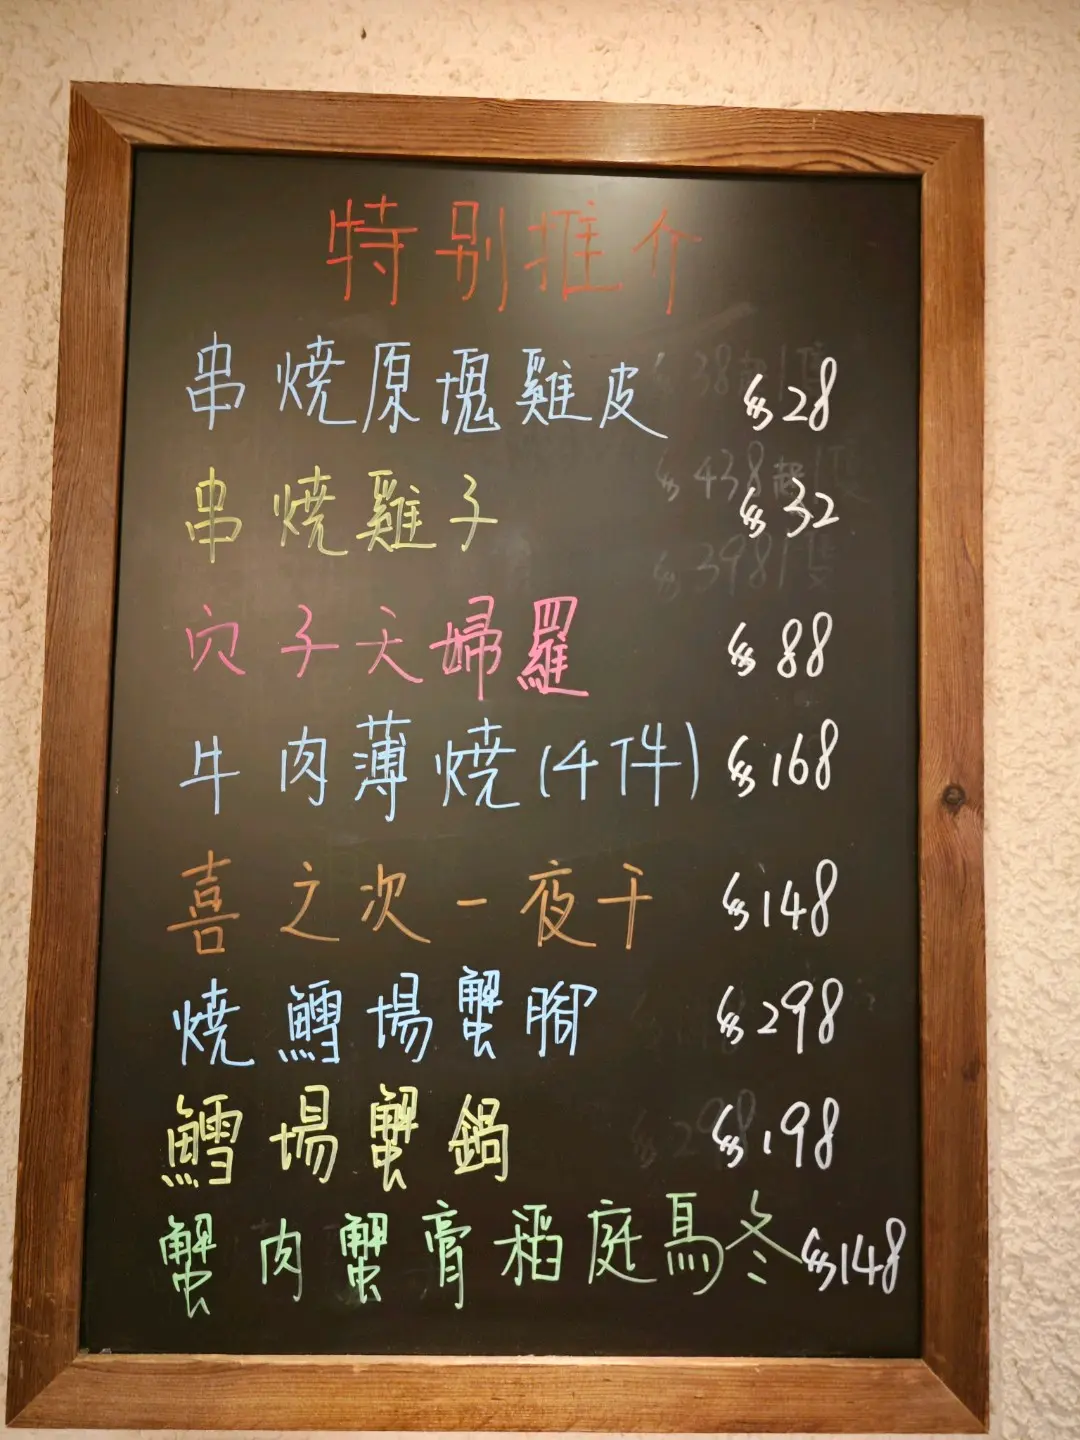 特别推介
串燒原塊雞皮 $28
串燒雞子 $32
穴子天婦羅 $88
牛肉薄燒(4件) $168
喜之次一夜干 $148
燒鱈場蟹腳 $298
鱈場蟹鍋 $198
蟹肉蟹膏稻庭烏冬 $148